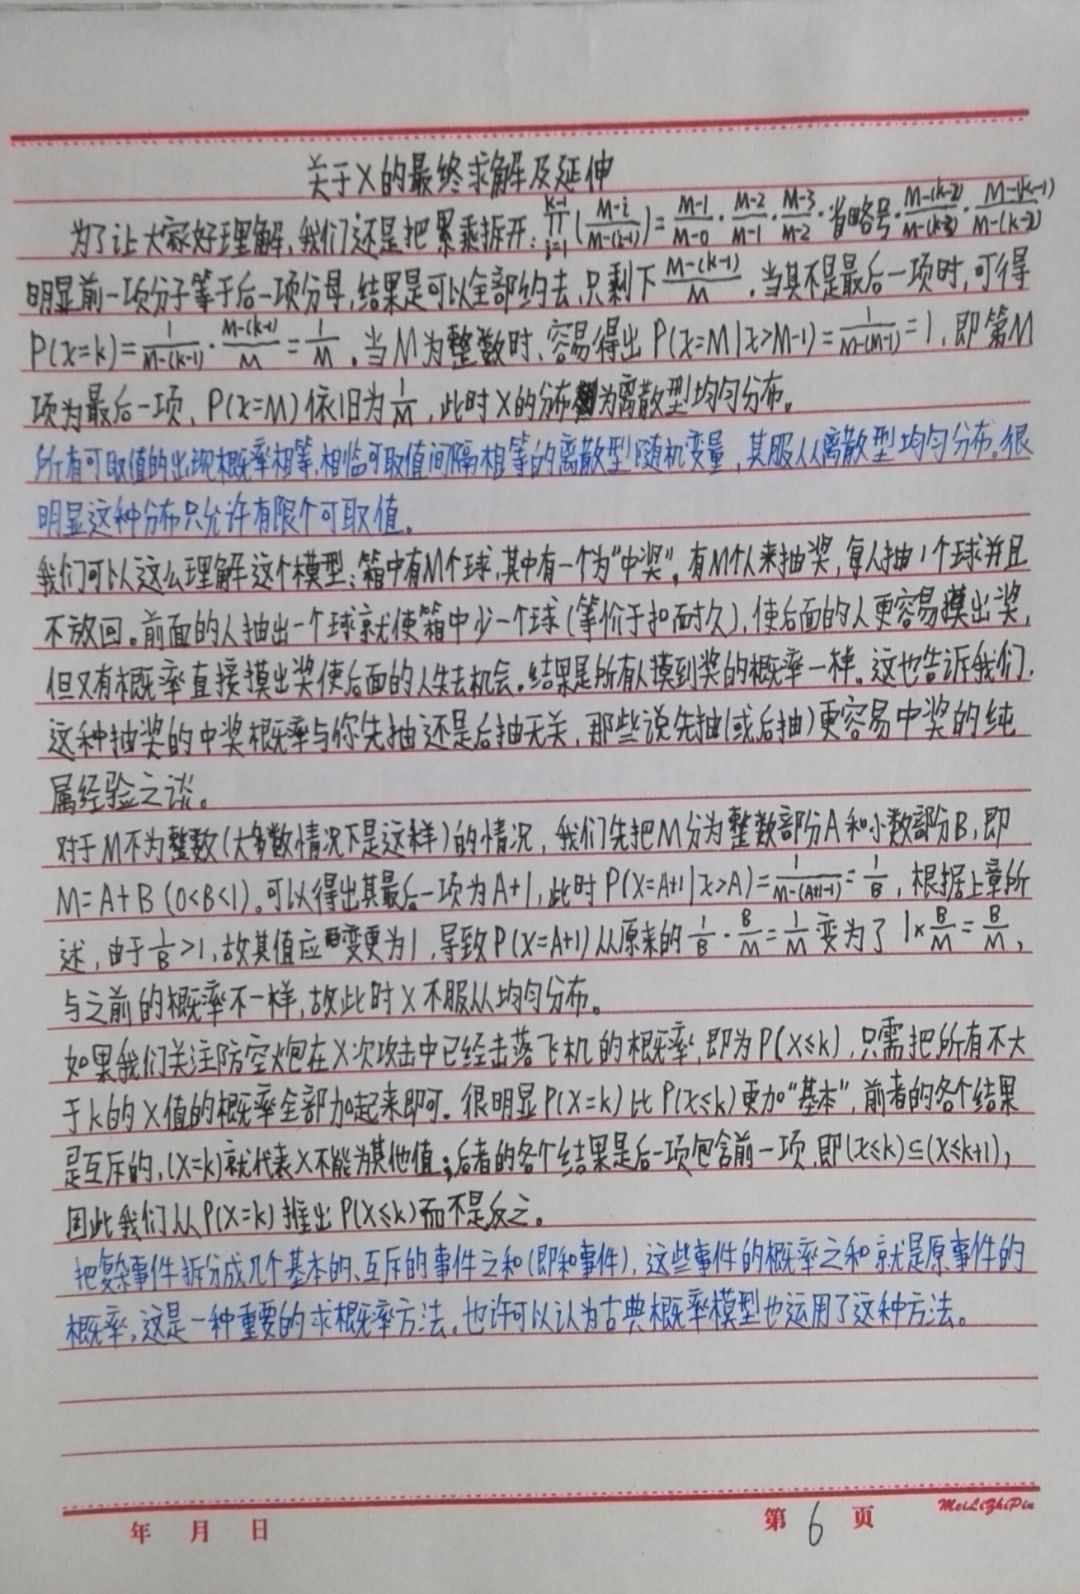 关于X的最终求解及延伸
为了让大家好理解,我们还是把累乘拆开:∏_{i=1}^{k-1}(\frac{M-i}{M-(i-1)})=\frac{M-1}{M-0}·\frac{M-2}{M-1}·\frac{M-3}{M-2}·省略号·\frac{M-(k-2)}{M-(k-3)}·\frac{M-(k-1)}{M-(k-2)}
明显前一项分子等于后一项分母,结果是可以全部约去,只剩下\frac{M-(k-1)}{M}。当其不是最后一项时,可得
P(X=k)=\frac{1}{M-(k-1)}·\frac{M-(k-1)}{M}=\frac{1}{M}。当M为整数时,容易得出P(X=M|X>M-1)=\frac{1}{M-(M-1)}=1,即第M
项为最后一项,P(X=M)依旧为\frac{1}{M},此时X的分布为离散型均匀分布。
所有可取值的出现概率相等,相临可取值间隔相等的离散型随机变量,其服从离散型均匀分布。很
明显这种分布只允许有限个可取值。
我们可以这么理解这个模型:箱中有M个球,其中有一个为“中奖”。有M个人来抽奖,每人抽1个球并且
不放回。前面的人抽出一个球就使箱中少一个球(等价于扣耐久),使后面的人更容易摸出奖,
但又有概率直接摸出奖使后面的人失去机会。结果是所有人摸到奖的概率一样。这也告诉我们,
这种抽奖的中奖概率与你先抽还是后抽无关,那些说先抽(或后抽)更容易中奖的纯
属经验之谈。
对于M不为整数(大多数情况下是这样)的情况,我们先把M分为整数部分A和小数部分B,即
M=A+B(0<B<1)。可以得出其最后一项为A+1,此时P(X=A+1|X>A)=\frac{1}{M-(A+1-1)}=\frac{1}{B},根据上章所
述,由于\frac{1}{B}>1,故其值应变更为1,导致P(X=A+1)从原来的\frac{1}{B}·\frac{B}{M}=\frac{1}{M}变为了1×\frac{B}{M}=\frac{B}{M},
与之前的概率不一样,故此时X不服从均匀分布。
如果我们关注防空炮在X次攻击中已经击落飞机的概率,即为P(X≤k),只需把所有不大
于k的X值的概率全部加起来即可。很明显P(X=k)比P(X≤k)更加“基本”,前者的各个结果
是互斥的,(X=k)就代表X不能为其他值;后者的各个结果是后一项包含前一项,即(X≤k)⊆(X≤k+1),
因此我们从P(X=k)推出P(X≤k)而不是反之。
把复杂事件拆分成几个基本的、互斥的事件之和(即和事件),这些事件的概率之和就是原事件的
概率,这是一种重要的求概率方法。也许可以认为古典概率模型也运用了这种方法。
MeiLiZhiPin
年 月 日 第 6 页